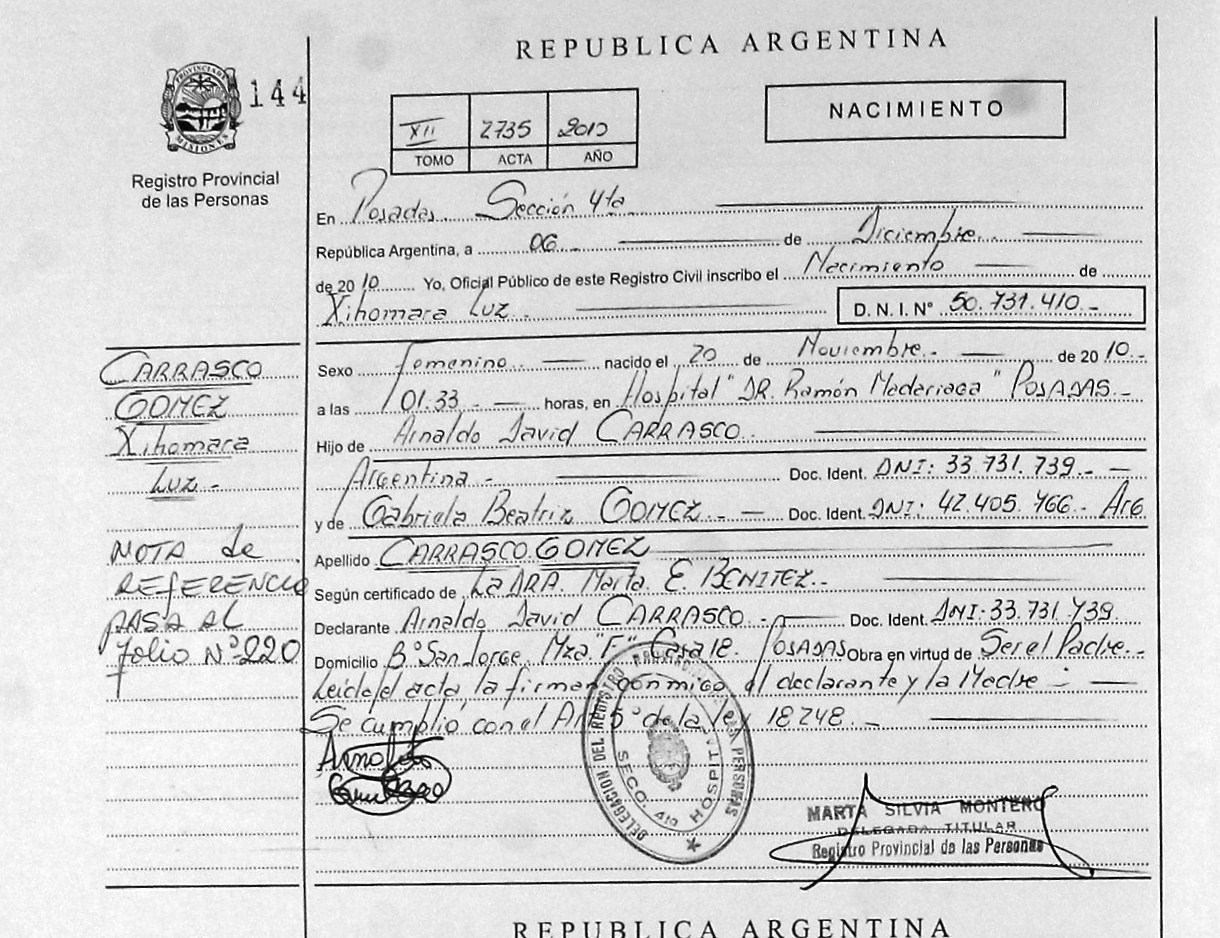 REPUBLICA ARGENTINA
PROVINCIA DE MISIONES
144
Registro Provincial
de las Personas
XII 2735 2010
TOMO ACTA AÑO
NACIMIENTO
En Posadas Sección 4ta
República Argentina, a 06 de Diciembre
de 2010 Yo, Oficial Público de este Registro Civil inscribo el Nacimiento de
Xihomara Luz. D. N. I. Nº 50.731.410.-
CARRASCO
GOMEZ
Xihomara
Luz -
NOTA de
REFERENCIA
PASA AL
folio Nº 220
Sexo femenino. nacido el 20 de Noviembre.- de 2010.-
a las 01.33.- horas, en Hospital "DR. Ramón Madariaga" POSADAS.-
Hijo de Arnaldo David CARRASCO.
Argentina.- Doc. Ident. DNI: 33.731.739.-
y de Gabriela Beatriz GOMEZ.- Doc. Ident. DNI: 42.405.766.- Arg.
Apellido CARRASCO GOMEZ
Según certificado de La DRA. Marta E. BENITEZ.-
Declarante Arnaldo David CARRASCO.- Doc. Ident. DNI: 33.731.739
Domicilio Bº San Jorge, Mza "F" Casa 18. POSADAS Obra en virtud de Ser el Padre.-
Leída el acta, la firman conmigo el declarante y la Madre
Se cumplió con el Art 5º de la ley 18248.-
DELEGACION DEL REGISTRO PROVINCIAL DE LAS PERSONAS
SECC. 4ta HOSPITAL
MARTA SILVIA MONTERO
DELEGADA TITULAR
Registro Provincial de las Personas
REPUBLICA ARGENTINA